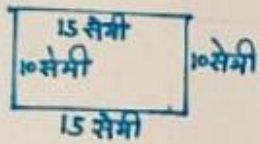 15 सेमी
10 सेमी 10 सेमी
15 सेमी